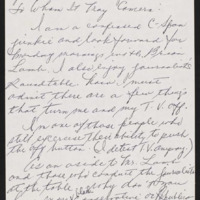 To Whom It May Concern:
I am a confessed C-Span
junkie and look forward to
Sunday mornings with Brian
Lamb. I also enjoy Journalists
Roundtable. However, I must
admit there are a few things
that turn me and my T.V. off.
I'm one of those people who
still exercise the ability to push
the off button. (I detest T.V. anyway.)
As an aside to Mr. Lamb
and those who conduct the journalists
at the table. Why does
conservative or Republican